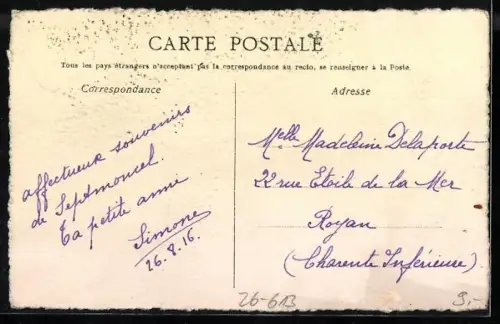 CARTE POSTALE
Tous les pays étrangers n'acceptant pas la correspondance au recto, se renseigner à la Poste.
Correspondance
Adresse
affectueux souvenirs
de Septmoncel.
Ta petite amie
Simone
26.8.16.
Melle Madeleine Delaporte
22 rue Etoile de la Mer
Royan
(Charente Inférieure)
26-613
9.-